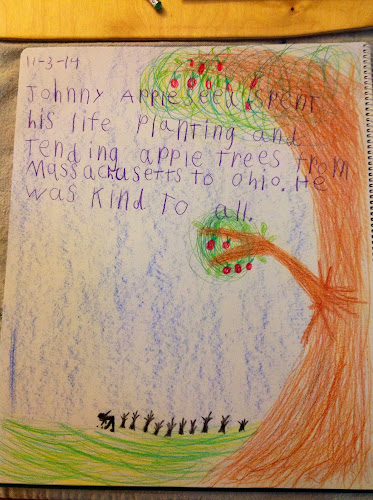 11-3-14
Johnny Appleseed spent
his life planting and
Tending apple trees from
Massachusetts to Ohio. He
was kind to all.